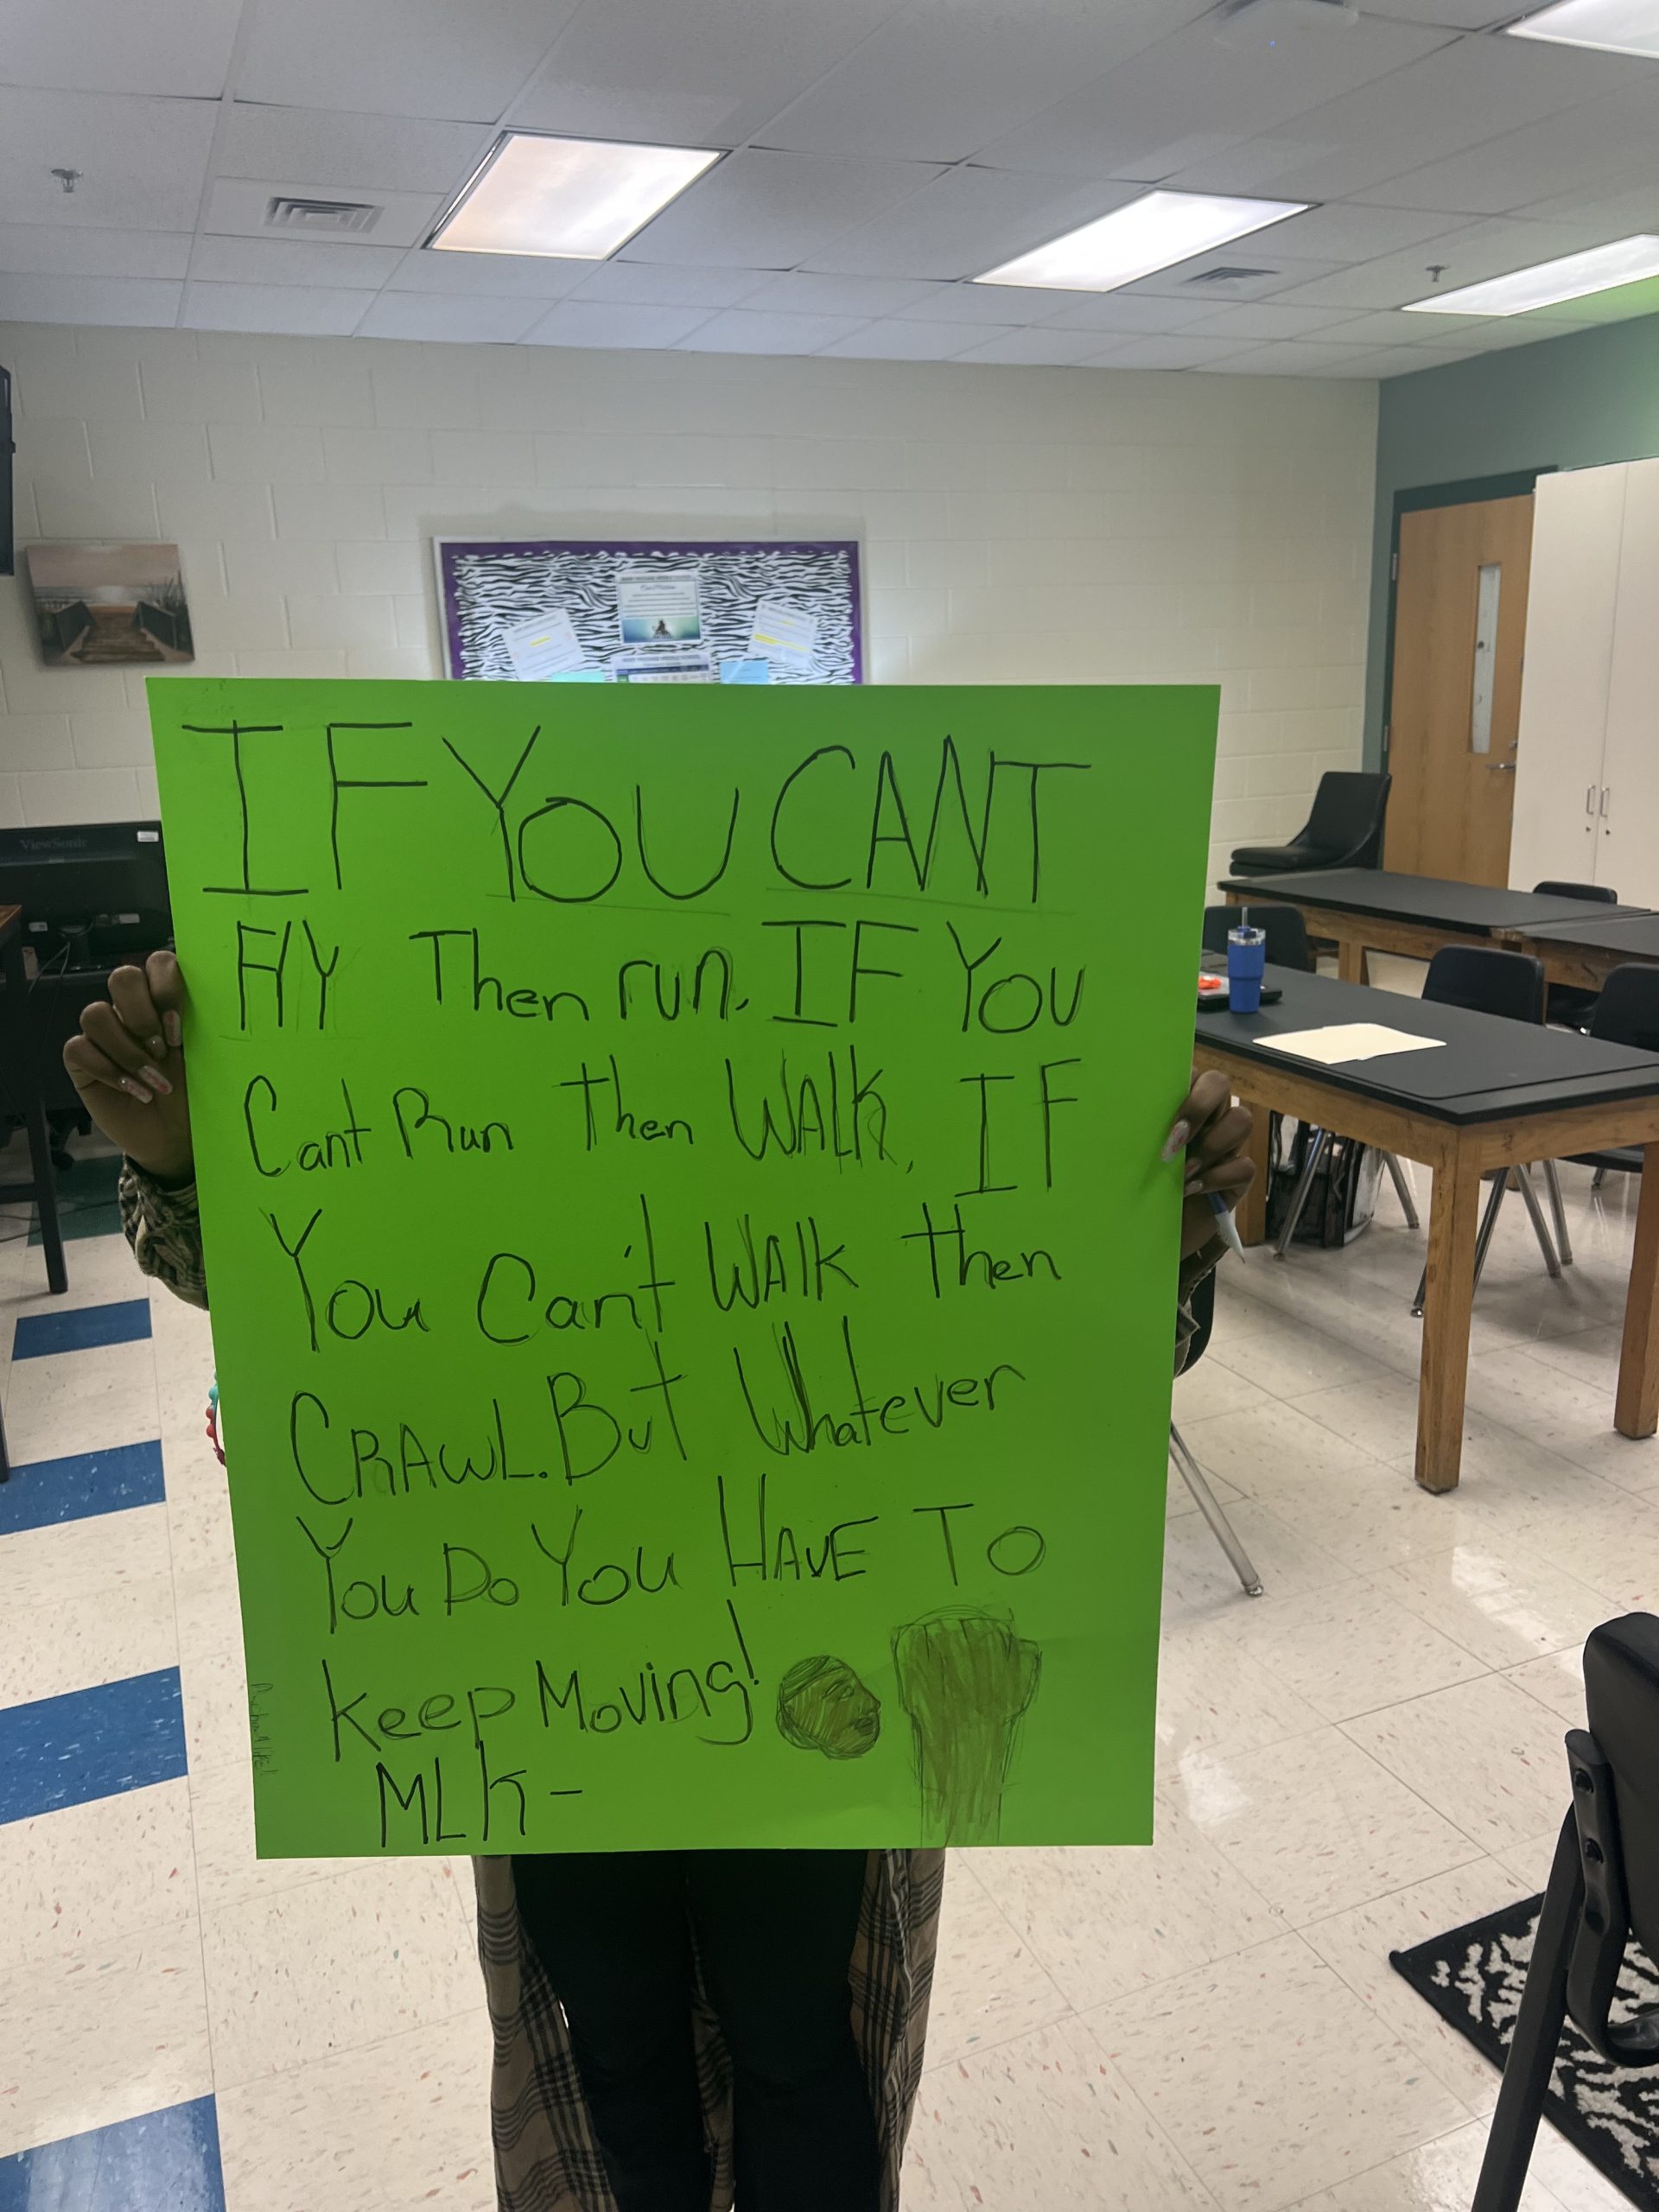 ViewSonic
IF YOU CANT
FlY Then run. IF YOU
Cant Run then WAlk, IF
You Can't WAlk then
CRAWL. But Whatever
You Do You HAVE TO
keep Moving!
MLk-